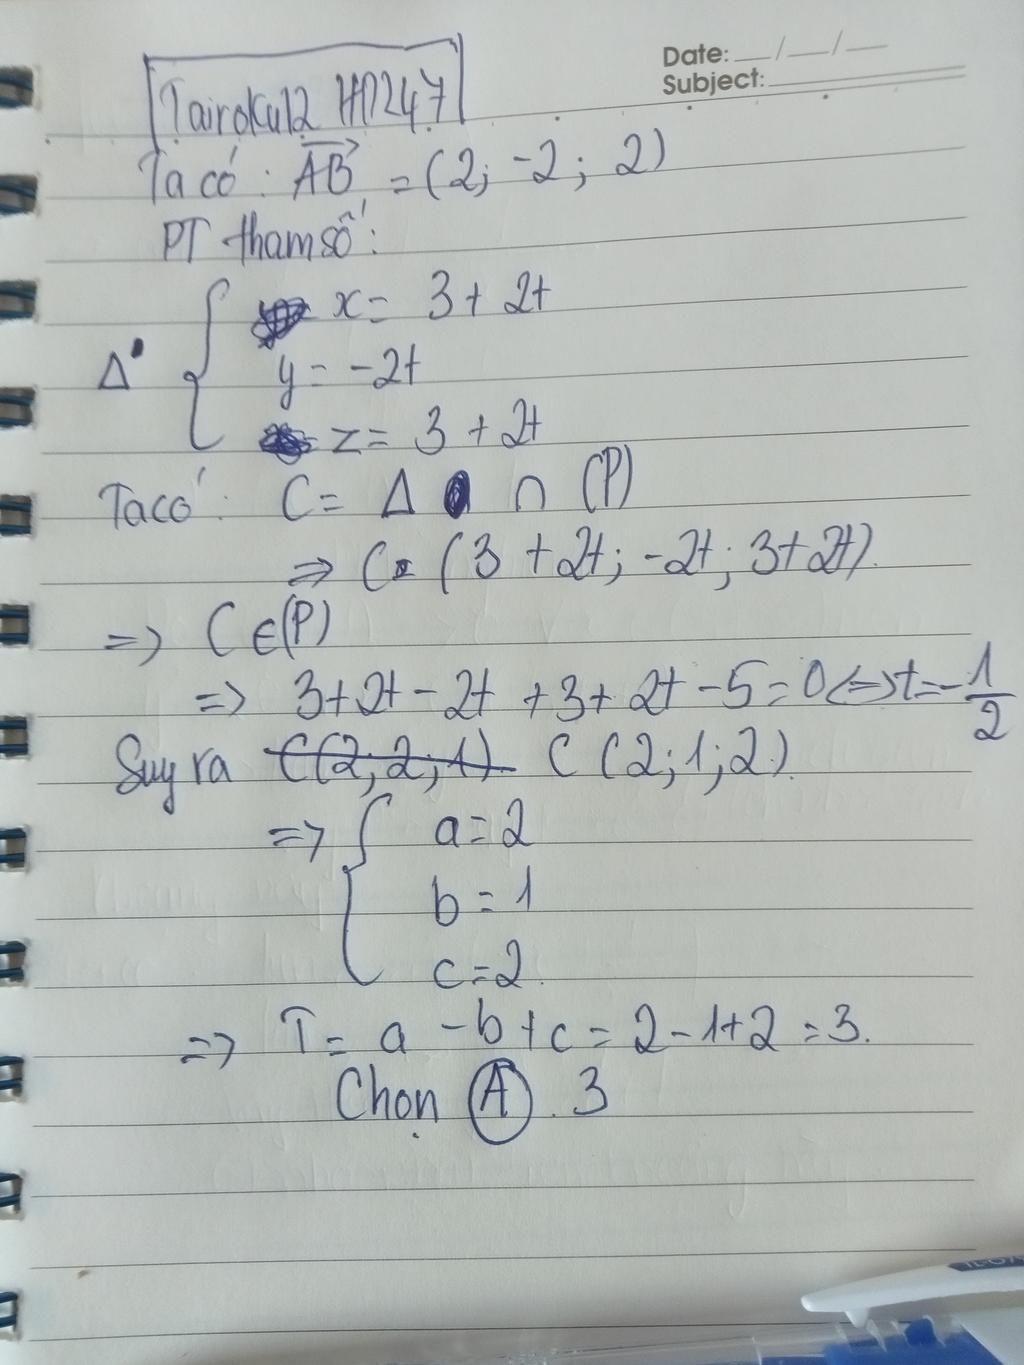 Date: __/__/__
Subject:
Tairoku12 H247
Ta có: AB = (2; -2; 2)
PT tham số:
Δ { x = 3 + 2t
y = -2t
z = 3 + 2t
Ta có: C = Δ ∩ (P)
=> C (3 + 2t; -2t; 3 + 2t).
=> C ∈ (P)
=> 3 + 2t - 2t + 3 + 2t - 5 = 0 <=> t = -1/2
Suy ra C(2; 2; 1) C (2; 1; 2).
=> { a = 2
b = 1
c = 2.
=> T = a - b + c = 2 - 1 + 2 = 3.
Chọn A. 3